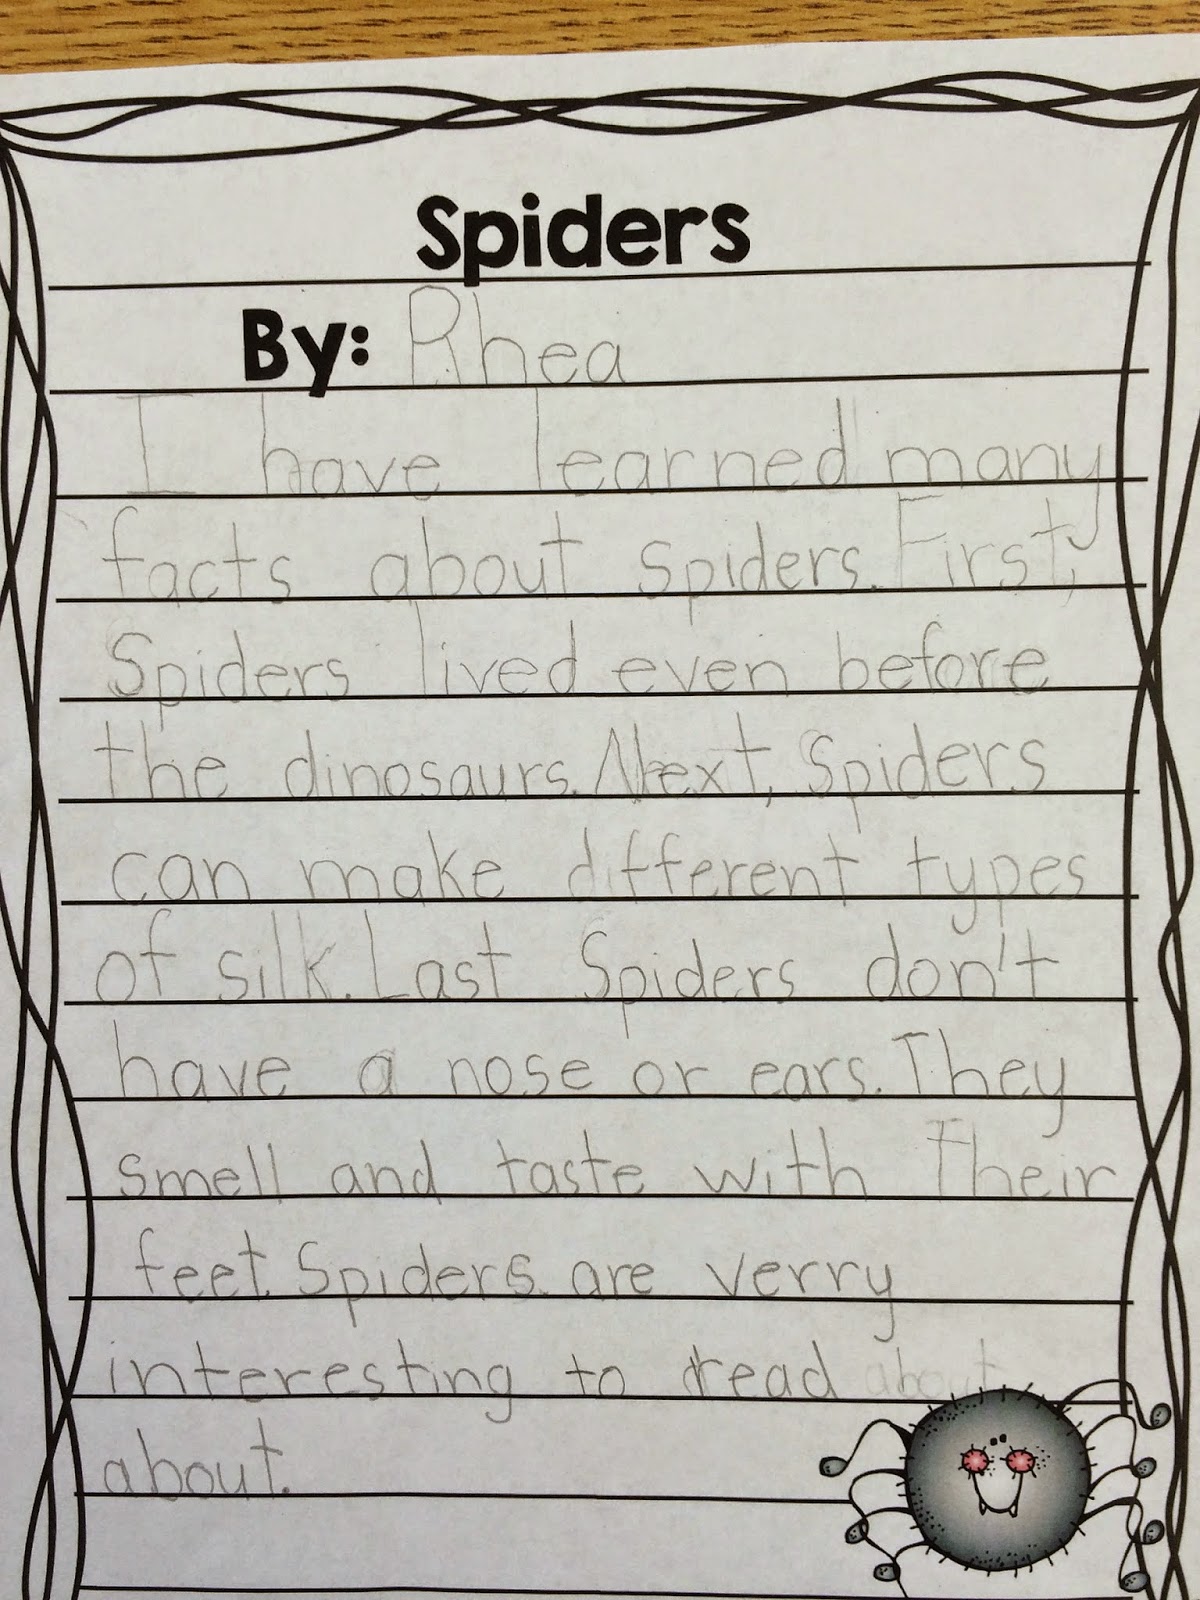 Spiders
By: Rhea
I have learned many
facts about spiders. First,
Spiders lived even before
the dinosaurs. Next, Spiders
can make different types
of silk. Last Spiders don't
have a nose or ears. They
smell and taste with Their
feet. Spiders are verry
interesting to read about
about.